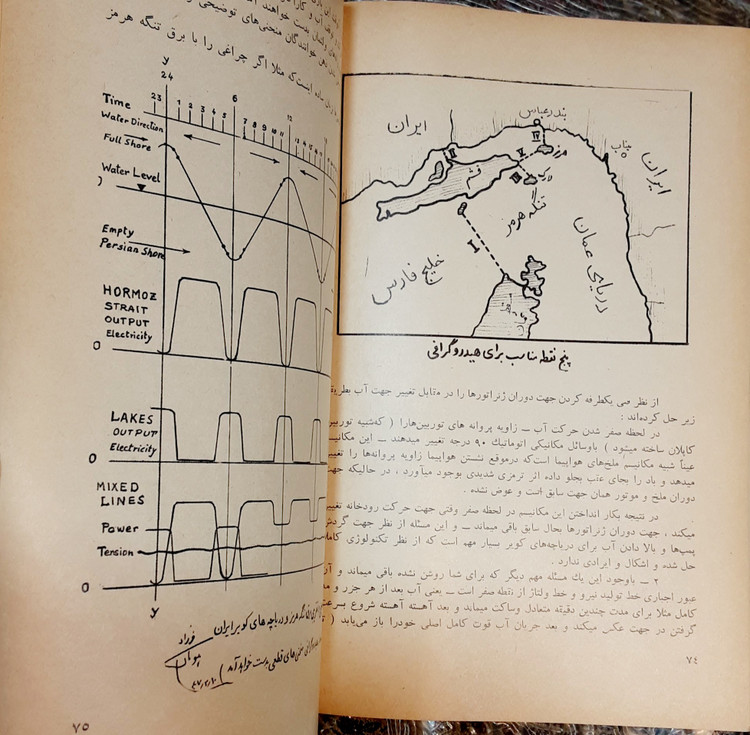 ایران
بندرعباس
میناب
ایران
هرمز
قشم
لارک
تنگه هرمز
خلیج فارس
دریای عمان
I
II
IV
V
پنج نقطه مناسب برای هیدروگرافی
از نظر فنی یکطرفه کردن جهت دوران ژنراتورها را در مقابل تغییر جهت آب بطریقه
زیر حل کرده‌اند :
در لحظه صفر شدن حرکت آب – زاویه پروانه های توربین‌هارا ( که‌شبیه توربین
کاپلان ساخته میشود ) باوسائل مکانیکی اتوماتیک ۹۰ درجه تغییر میدهند – این مکانیسم
عیناً شبیه مکانیسم ملخ‌های هواپیما است‌که درموقع نشستن هواپیما زاویه پروانه‌ها را تغییر
میدهد و باد را بجای عقب بجلو داده اثر ترمزی شدیدی بوجود میآورد ، در حالیکه جهت
دوران ملخ و موتور همان جهت سابق است و عوض نشده .
در نتیجه بکار انداختن این مکانیسم در لحظه صفر وقتی جهت حرکت رودخانه تغییر
میکند ، جهت دوران ژنراتورها بحال سابق باقی میماند – و این مسئله از نظر جهت گردش
پمپ‌ها و بالا دادن آب برای دریاچه‌های کویر بسیار مهم است که از نظر تکنولوژی کاملا
حل شده و اشکال و ایرادی ندارد .
۲ – باوجود این یك مسئله مهم دیگر که برای شما روشن نشده باقی میماند و آن
عبور اجباری خط تولید نیرو و خط ولتاژ از نقطه صفر است – یعنی آب بعد از هر جزر و مد
کامل مثلا برای مدت چندین دقیقه متعادل وساکت میماند و بعد آهسته آهسته شروع بسرعت
گرفتن در جهت عکس میکند و بعد جریان آب قوت کامل اصلی خودرا باز می‌یابد (
۷٤
خوانندگان منحنی‌های توضیحی
است‌که مثلا اگر چراغی را با برق تنگه هرمز
y
24
Time 23 1 2 3 4 5 6 7 8 9 10 11 12 13 14 15
Water Direction
Full Shore
Water Level
Empty
Persian Shore
HORMOZ
STRAIT
OUTPUT
Electricity
0
LAKES
OUTPUT
Electricity
0
MIXED
LINES
Power
Tension
0
y
تنگه هرمز و دریاچه های کویر ایران
منحنی‌های قطعی بدست خواهد آمد
فرزاد
۷۵